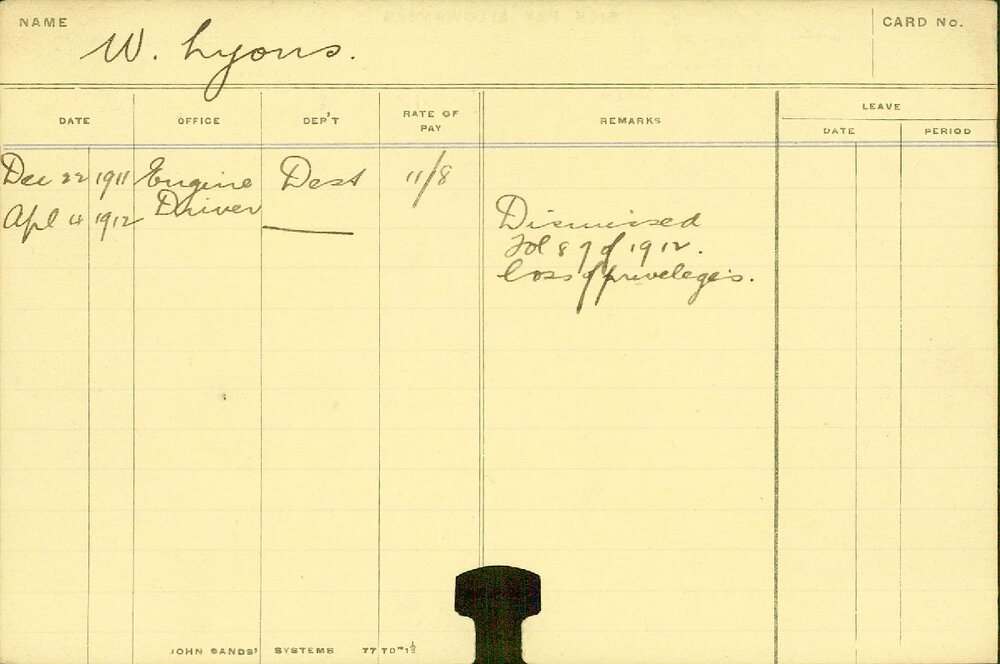 NAME
W. Lyons.
CARD No.
DATE OFFICE DEP'T RATE OF PAY REMARKS LEAVE
DATE PERIOD
Dec 22 1911 Engine Dest 11/8
Apl 4 1912 Driver
Dismissed
Fol 87 of 1912.
loss of priveleges.
JOHN SANDS' SYSTEMS 77